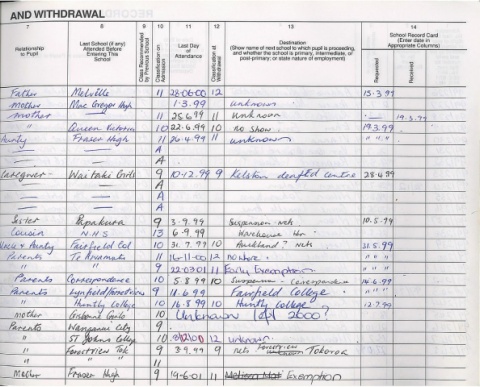 AND WITHDRAWAL
7 8 9 10 11 12 13 14
Relationship to Pupil
Last School (if any) Attended Before Entering This School
Class Recommended by Previous School
Classification on Admission
Last Day of Attendance
Classification at Withdrawal
Destination (Show name of next school to which pupil is proceeding, and whether the school is primary, intermediate, or post-primary; or state nature of employment)
School Record Card (Enter date in Appropriate Columns)
Requested
Received
Father Melville 11 28-06-00 12 15.3.99
Mother Mac Gregor High 1.3.99 unknown
Mother 11 25.6.99 11 Unknown 19.3.99
" Queen Victoria 10 22.6.99 10 no show 19.3.99
Aunty Fraser High 11 26.4.99 11 unknown " " "
— — A
— — A
Caregiver Waitaki Girls 9 10-12-99 9 Kelston deaf ed centre 28.4.99
— — A
— — A
— — A
Sister Papakura 9 3-9-99 Suspension - nets 10.5.99
Cousin N H S 13 6-9-99 Warehouse
Uncle & Aunty Fairfield Col 10 31.7.99 10 Auckland? nets 11.5.99
Parents Te Awamutu 11 16-11-00 12 " " "
" " 9 22-03-01 11 Early Exemption " " "
Parents Correspondence 10 5.8.99 10 Suspension - Correspondence 14.6.99
Parents 9 11.6.99 Fairfield College " " "
" Huntly College 10 16.8.99 10 Huntly College 12.7.99
mother Gisborne Girls 10 Unknown left 2000?
Parents Wanganui City 9
" ST Johns College 10 12 unknown
" Forestview Tok 9 3.9.99 9 nets Forestview Tokoroa
" " 11
Mother Fraser High 9 19-6-01 11 Exemption